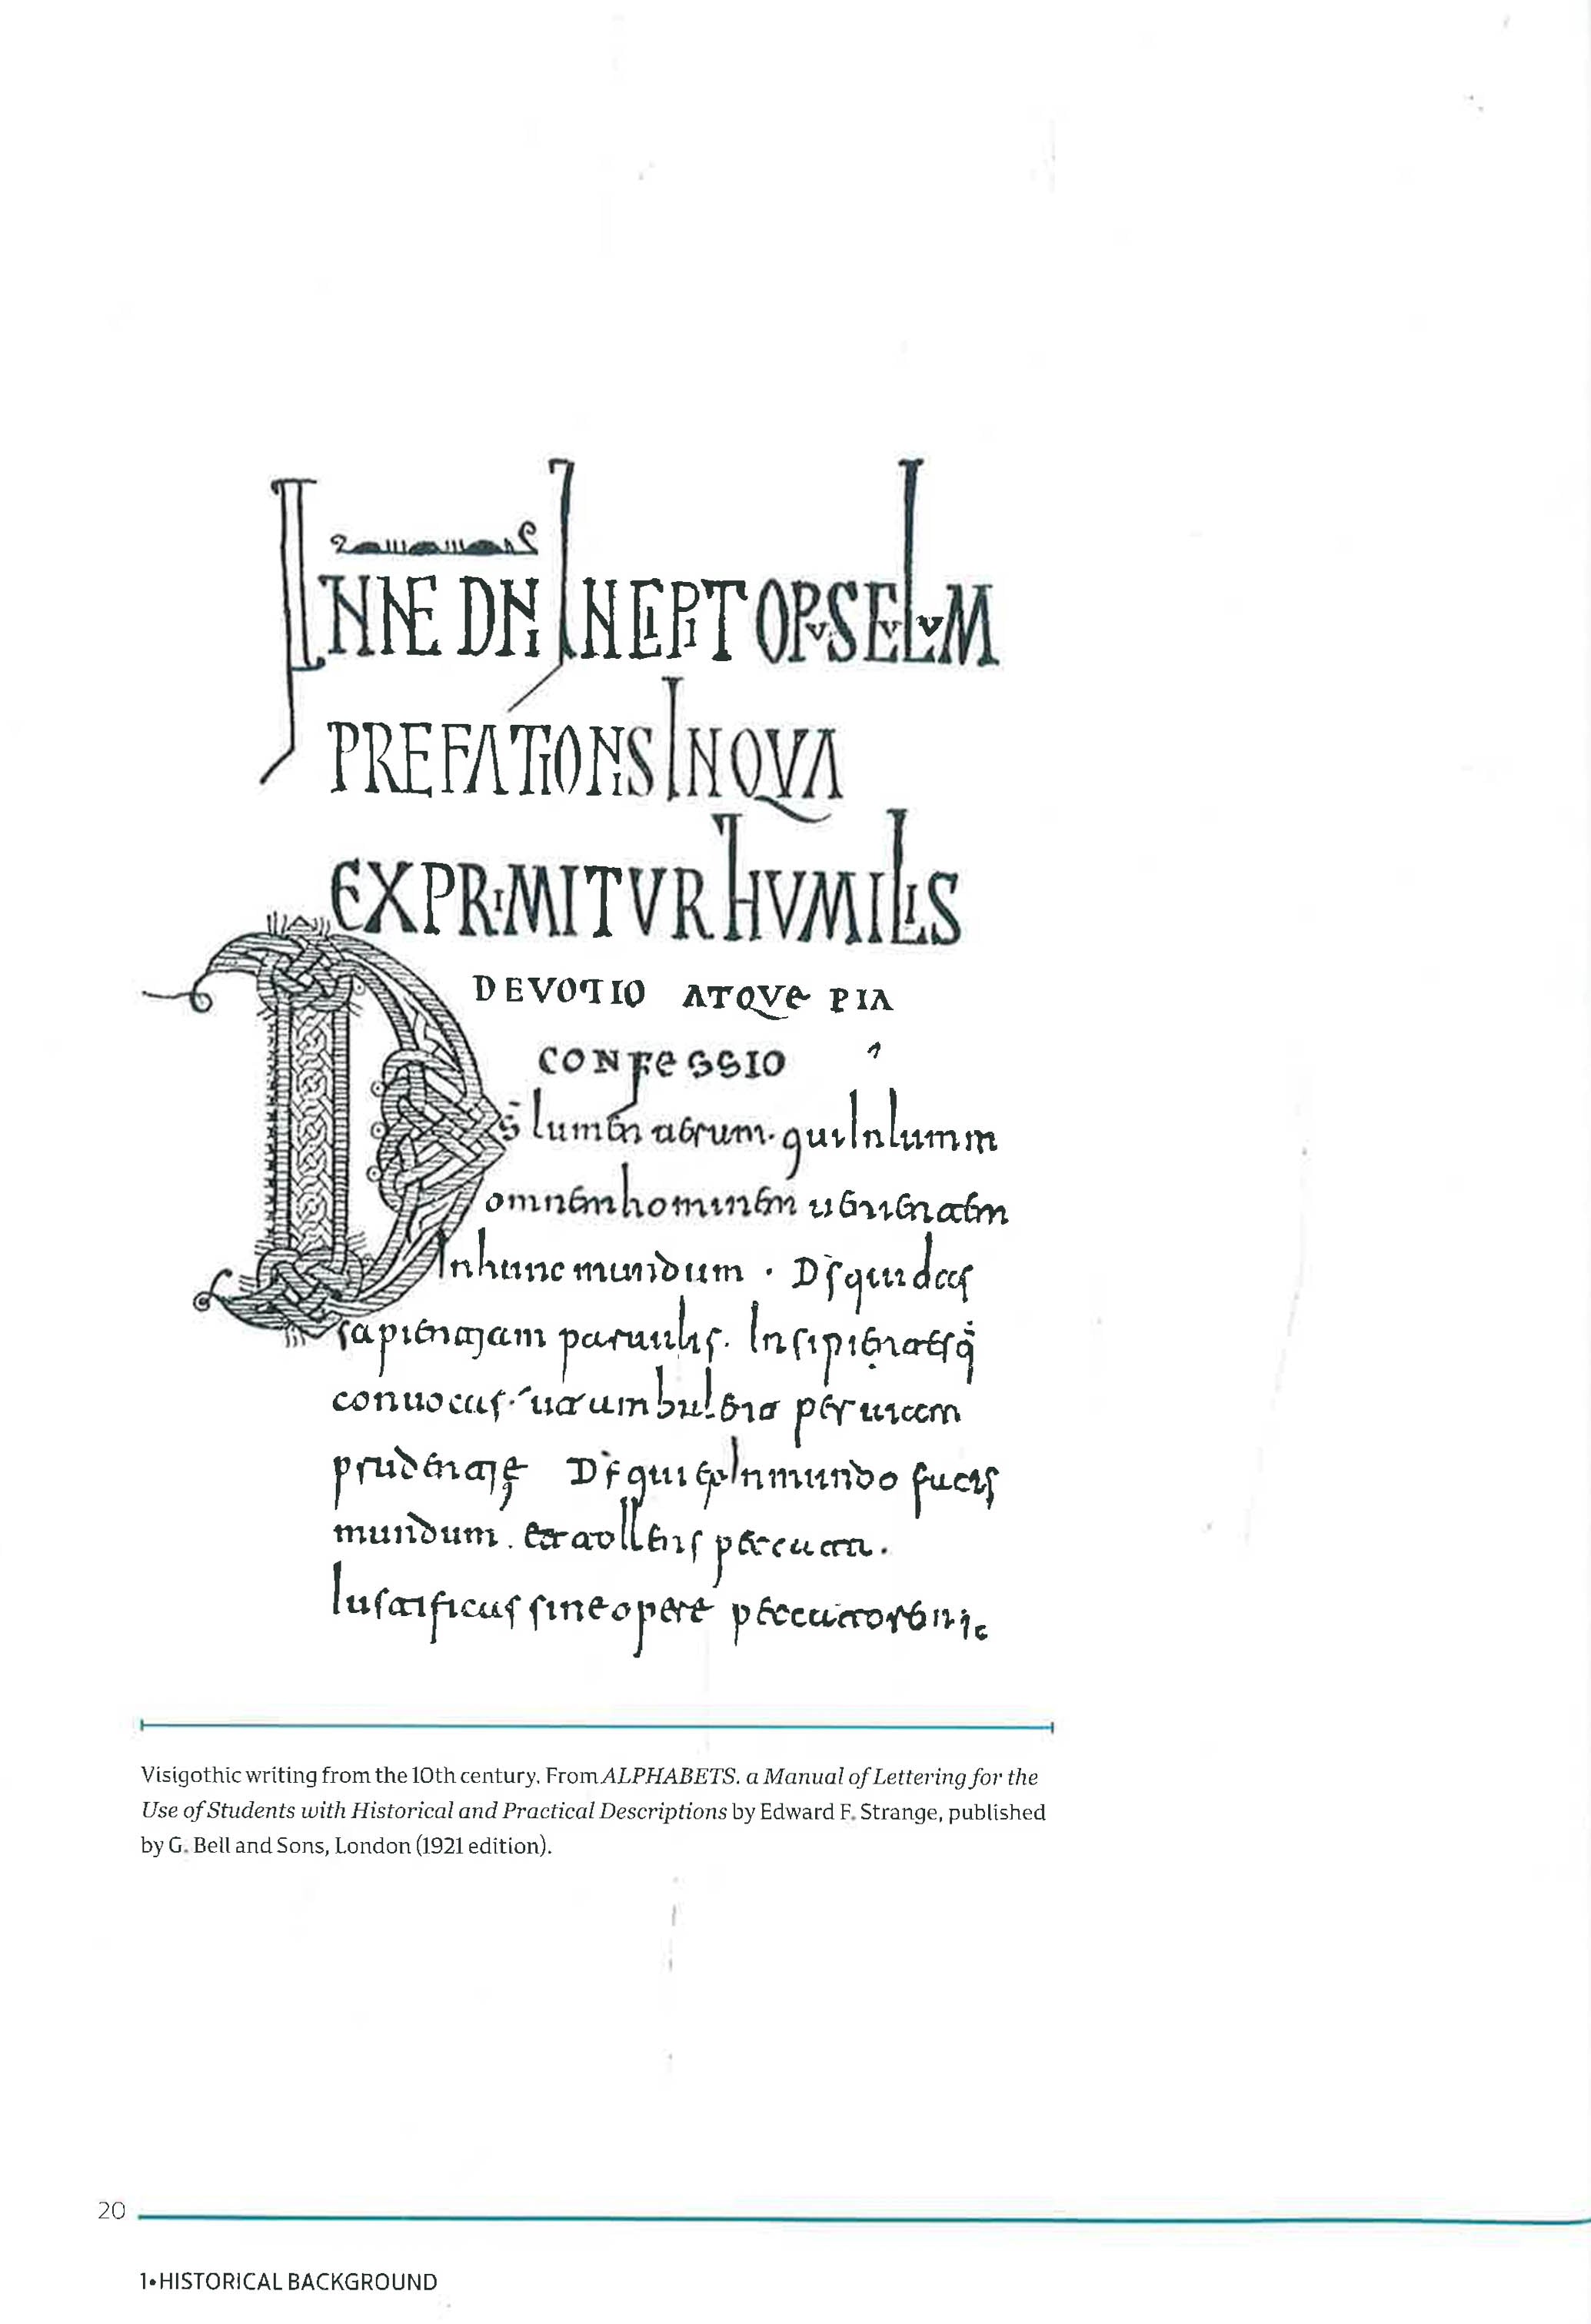 IN NE DNI INCIPIT OPUSCULUM
PREFATIONIS IN QVA
EXPRIMITVR HVMILIS
DEVOTIO ATQVE PIA
CONFESSIO
Ds lumen uerum. qui Inlumin
omnem hominem uenientem
In hunc mundum . Ds qui docas
sapientiam paruulis. Insipientesq
conuocas
prudentie Ds qui In mundo
mundum . et tollens peccata.
Iustificas sine opere peccatorem
Visigothic writing from the 10th century. From ALPHABETS. a Manual of Lettering for the
Use of Students with Historical and Practical Descriptions by Edward F. Strange, published
by G. Bell and Sons, London (1921 edition).
20
1•HISTORICAL BACKGROUND